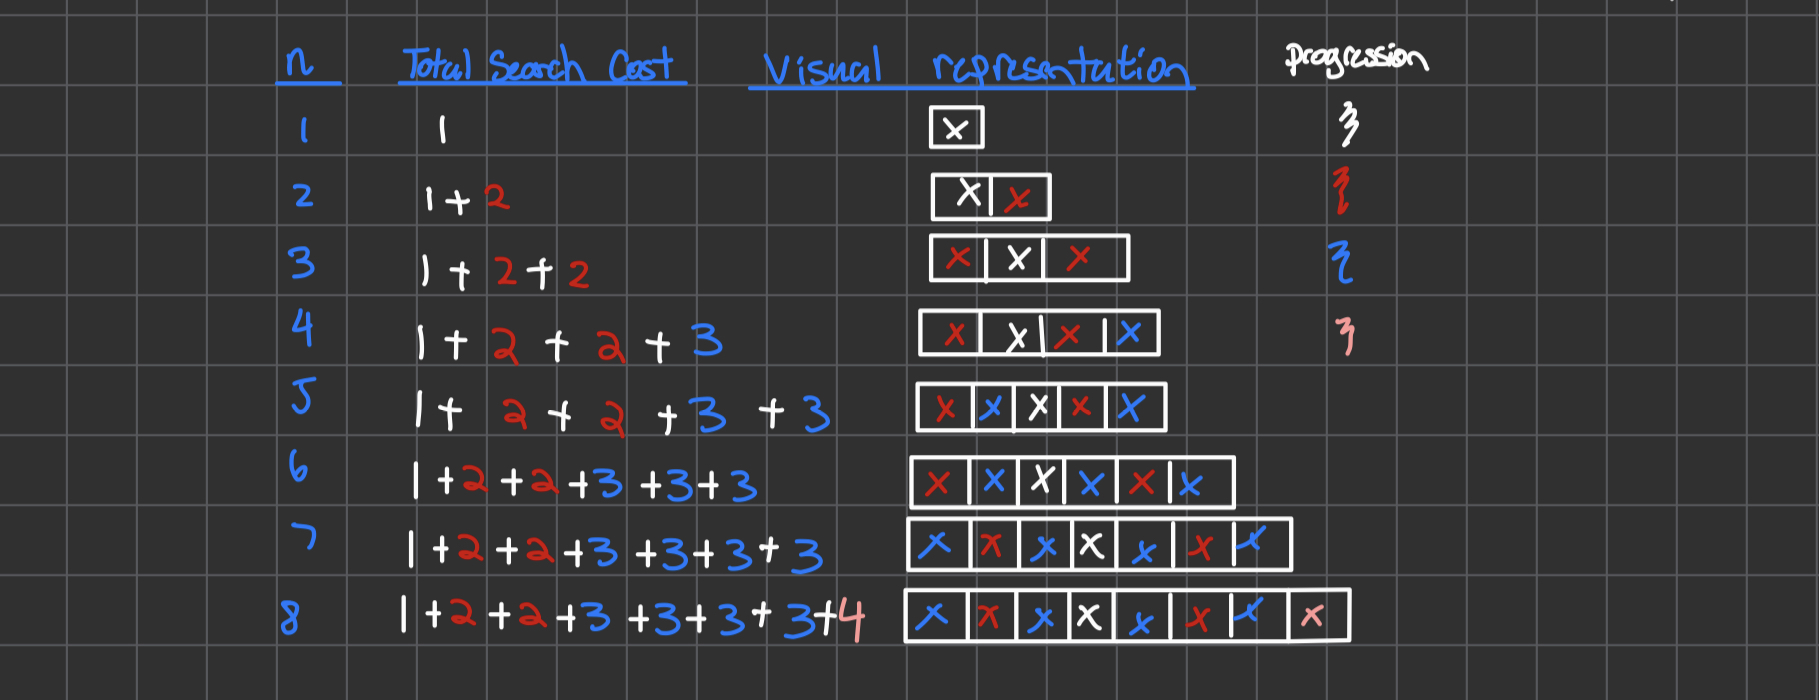 n Total Search Cost Visual representation progression
1 1 x
2 1 + 2 x x
3 1 + 2 + 2 x x x
4 1 + 2 + 2 + 3 x x x x
5 1 + 2 + 2 + 3 + 3 x x x x x
6 1 + 2 + 2 + 3 + 3 + 3 x x x x x x
7 1 + 2 + 2 + 3 + 3 + 3 + 3 x x x x x x x
8 1 + 2 + 2 + 3 + 3 + 3 + 3 + 4 x x x x x x x x